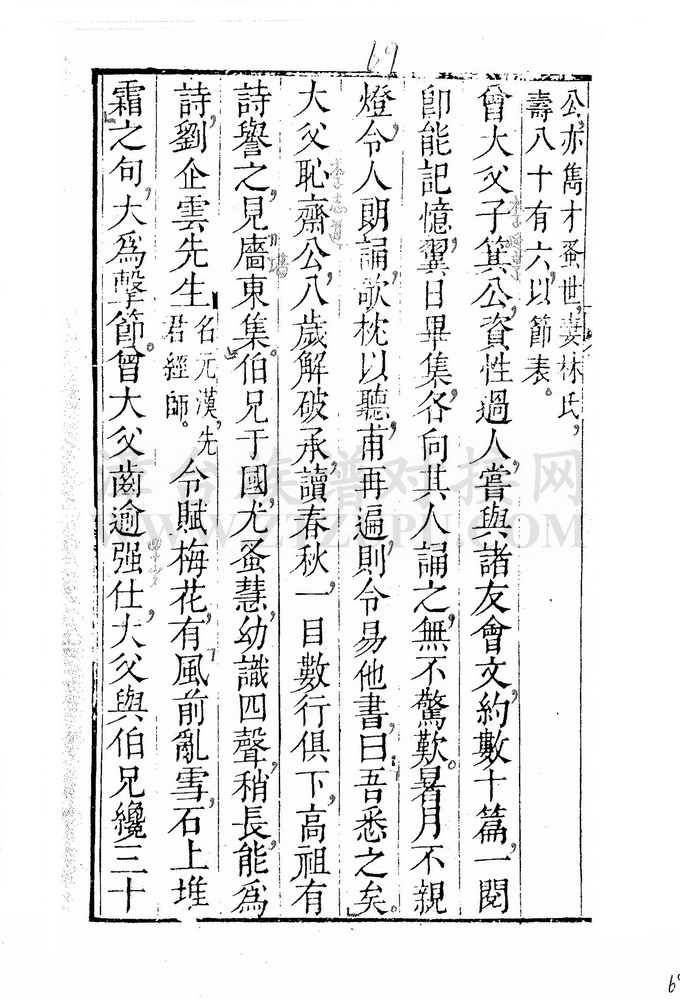 69
公，亦雋才蚤世，妻林氏，
壽八十有六，以節表。
曾大父子箕公，資性過人，嘗與諸友會文，約數十篇，一閱
卽能記憶，翼日畢集，各向其人誦之，無不驚歎。暑月不親
燈，令人朗誦，欹枕以聽，甫再遍，則令易他書，曰吾悉之矣。
大父恥齋公，八歲解破承，讀春秋，一目數行俱下，高祖有
詩譽之，見牆東集。伯兄于國，尤蚤慧，幼識四聲，稍長，能爲
詩，劉企雲先生名元漢，先君經師。令賦梅花，有風前亂雪，石上堆
霜之句，大爲擊節。曾大父齒逾强仕，大父與伯兄纔三十
WWW.ZTZUPU.COM